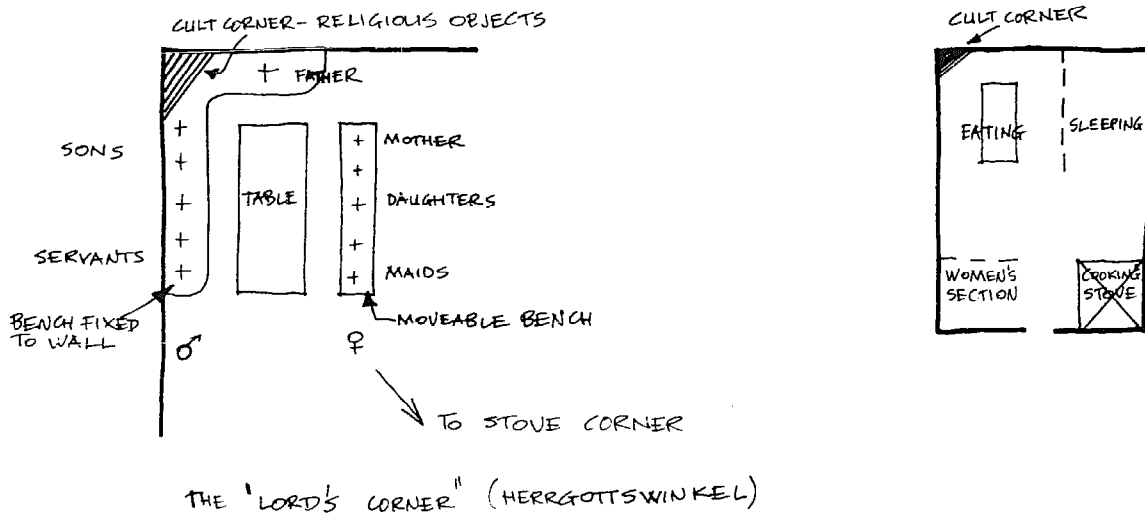 CULT CORNER - RELIGIOUS OBJECTS
FATHER
SONS
SERVANTS
BENCH FIXED
TO WALL
♂
TABLE
MOTHER
DAUGHTERS
MAIDS
MOVEABLE BENCH
♀
TO STOVE CORNER
THE "LORD'S CORNER" (HERRGOTTSWINKEL)
CULT CORNER
EATING
SLEEPING
WOMEN'S
SECTION
COOKING
STOVE